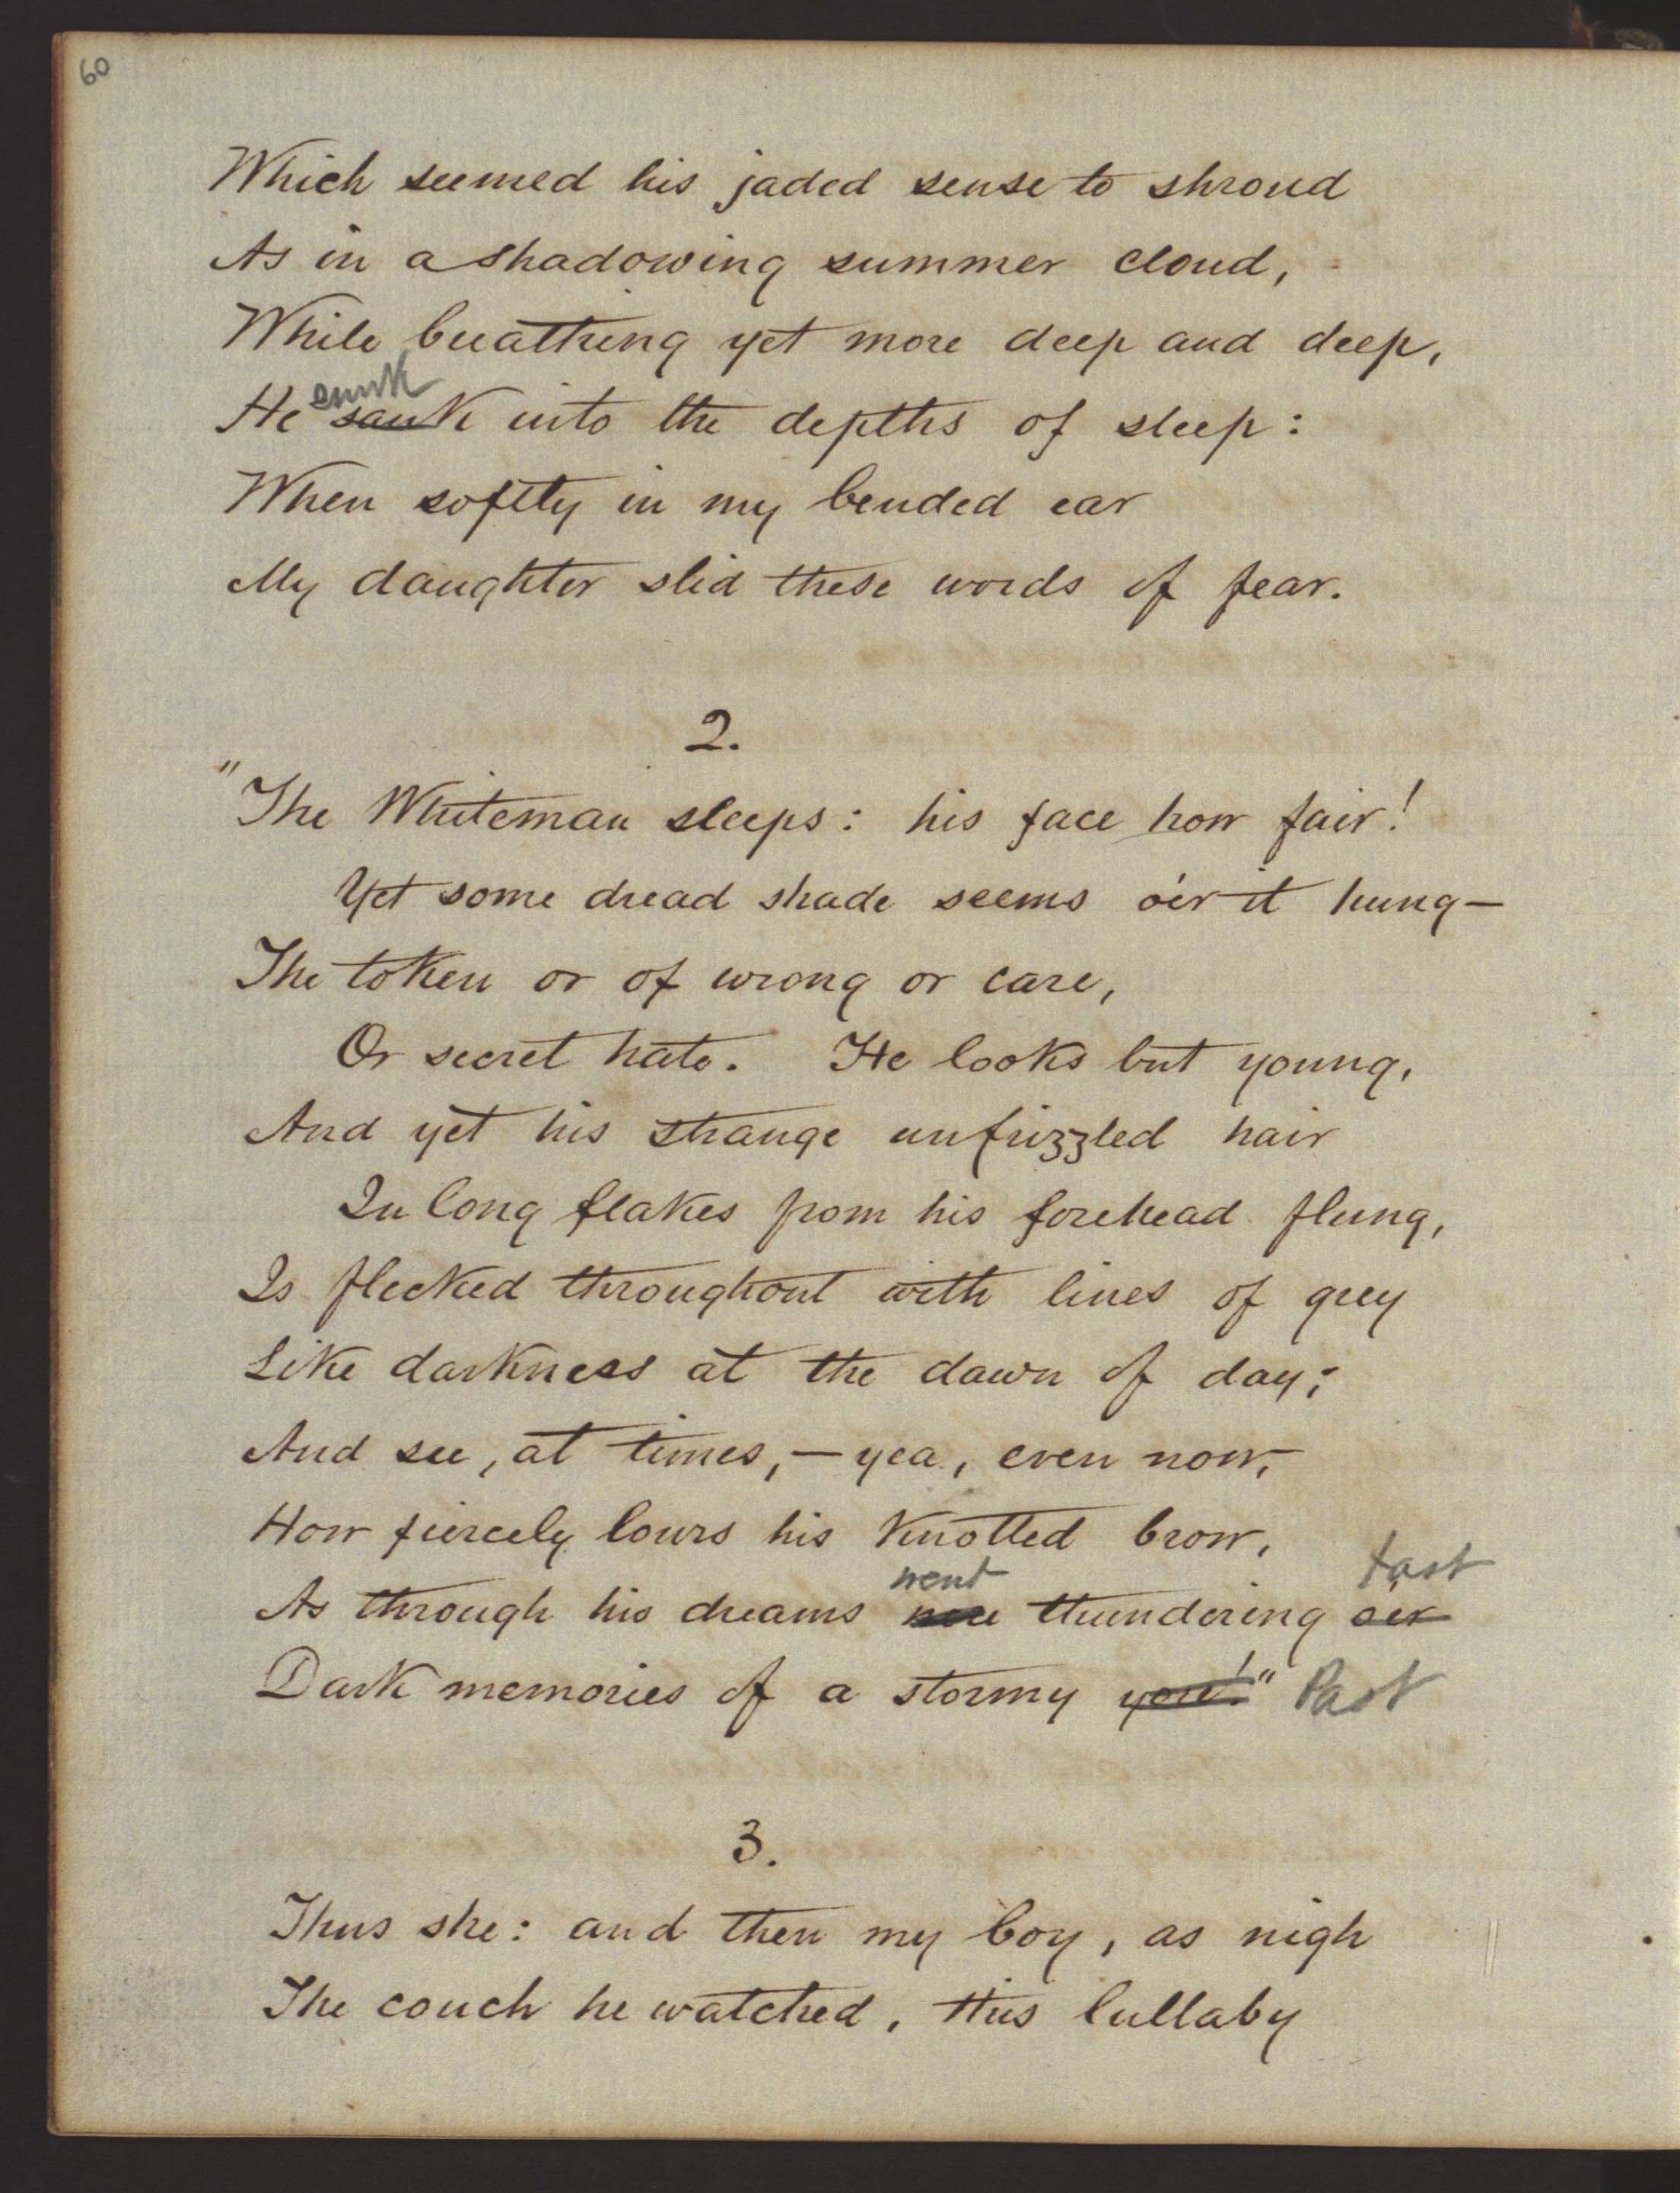 60
Which seemed his jaded sense to shroud
As in a shadowing summer cloud,
While breathing yet more deep and deep,
sunk
He sank into the depths of sleep:
When softly in my bended ear
My daughter slid these words of fear.
2.
"The Whiteman sleeps: his face how fair!
Yet some dread shade seems o'er it hung—
The token or of wrong or care,
Or secret hate. He looks but young,
And yet his strange unfrizzled hair
In long flakes from his forehead flung,
Is flecked throughout with lines of grey
Like darkness at the dawn of day;
And see, at times,—yea, even now,
How fiercely lours his knotted brow,
went fast
As through his dreams were thundering o'er
Dark memories of a stormy yore!" Past
3.
Thus she: and then my boy, as nigh
The couch he watched, this lullaby